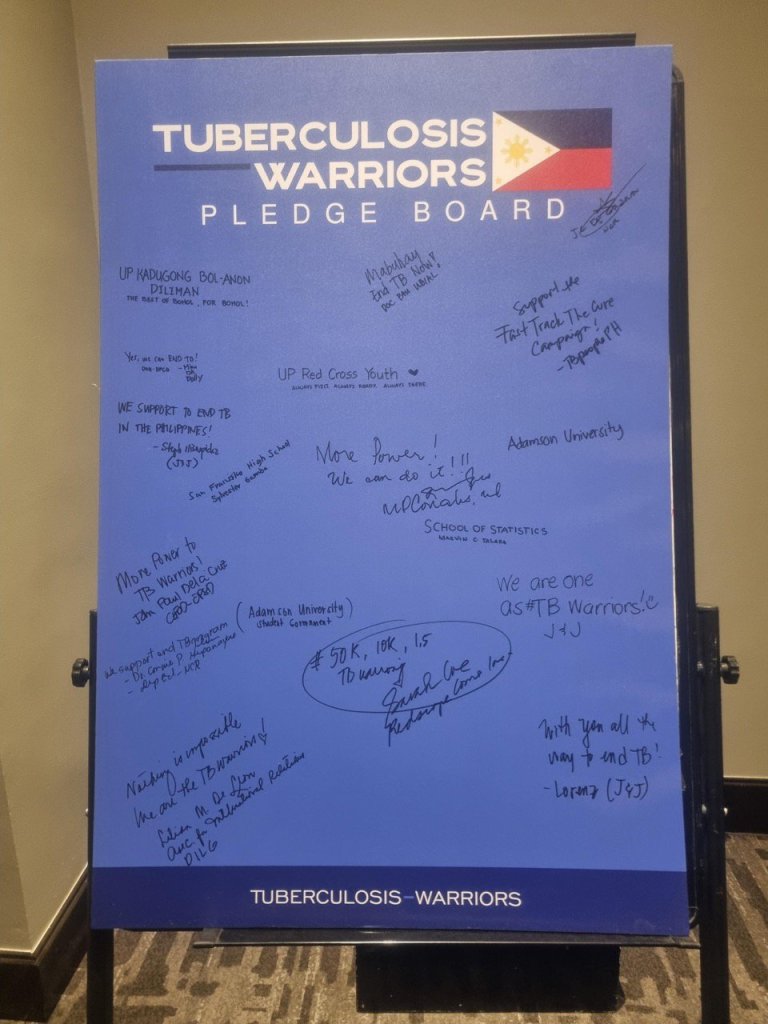 TUBERCULOSIS
WARRIORS
PLEDGE BOARD
UP KADUGONG BOL-ANON
DILIMAN
THE BEST OF BOHOL, FOR BOHOL!
Mabuhay
End TB Now!
DOC
Support the
Fast Track The Cure
Campaign!
- TBpeoplePH
Yes, we can END TB!
UP Red Cross Youth ♥
ALWAYS FIRST. ALWAYS READY. ALWAYS THERE.
WE SUPPORT TO END TB
IN THE PHILIPPINES!
(J&J)
San Francisco High School
Sylvester
More Power!
We can do it!!!
Adamson University
SCHOOL OF STATISTICS
MARVIN C.
More Power to
TB Warriors!
John Paul Dela Cruz
We are one
as #TB Warriors!
J&J
(Adamson University)
Student Government
we support end TB program
- DepEd - NCR
# 50K, 10K, 1.5
TB warriors
Sarah
Nothing is impossible
We are the TB Warriors!
Lilian M. De Leon
Asec. for International Relations
DILG
With you all the
way to end TB!
- Lorenz (J&J)
TUBERCULOSIS-WARRIORS